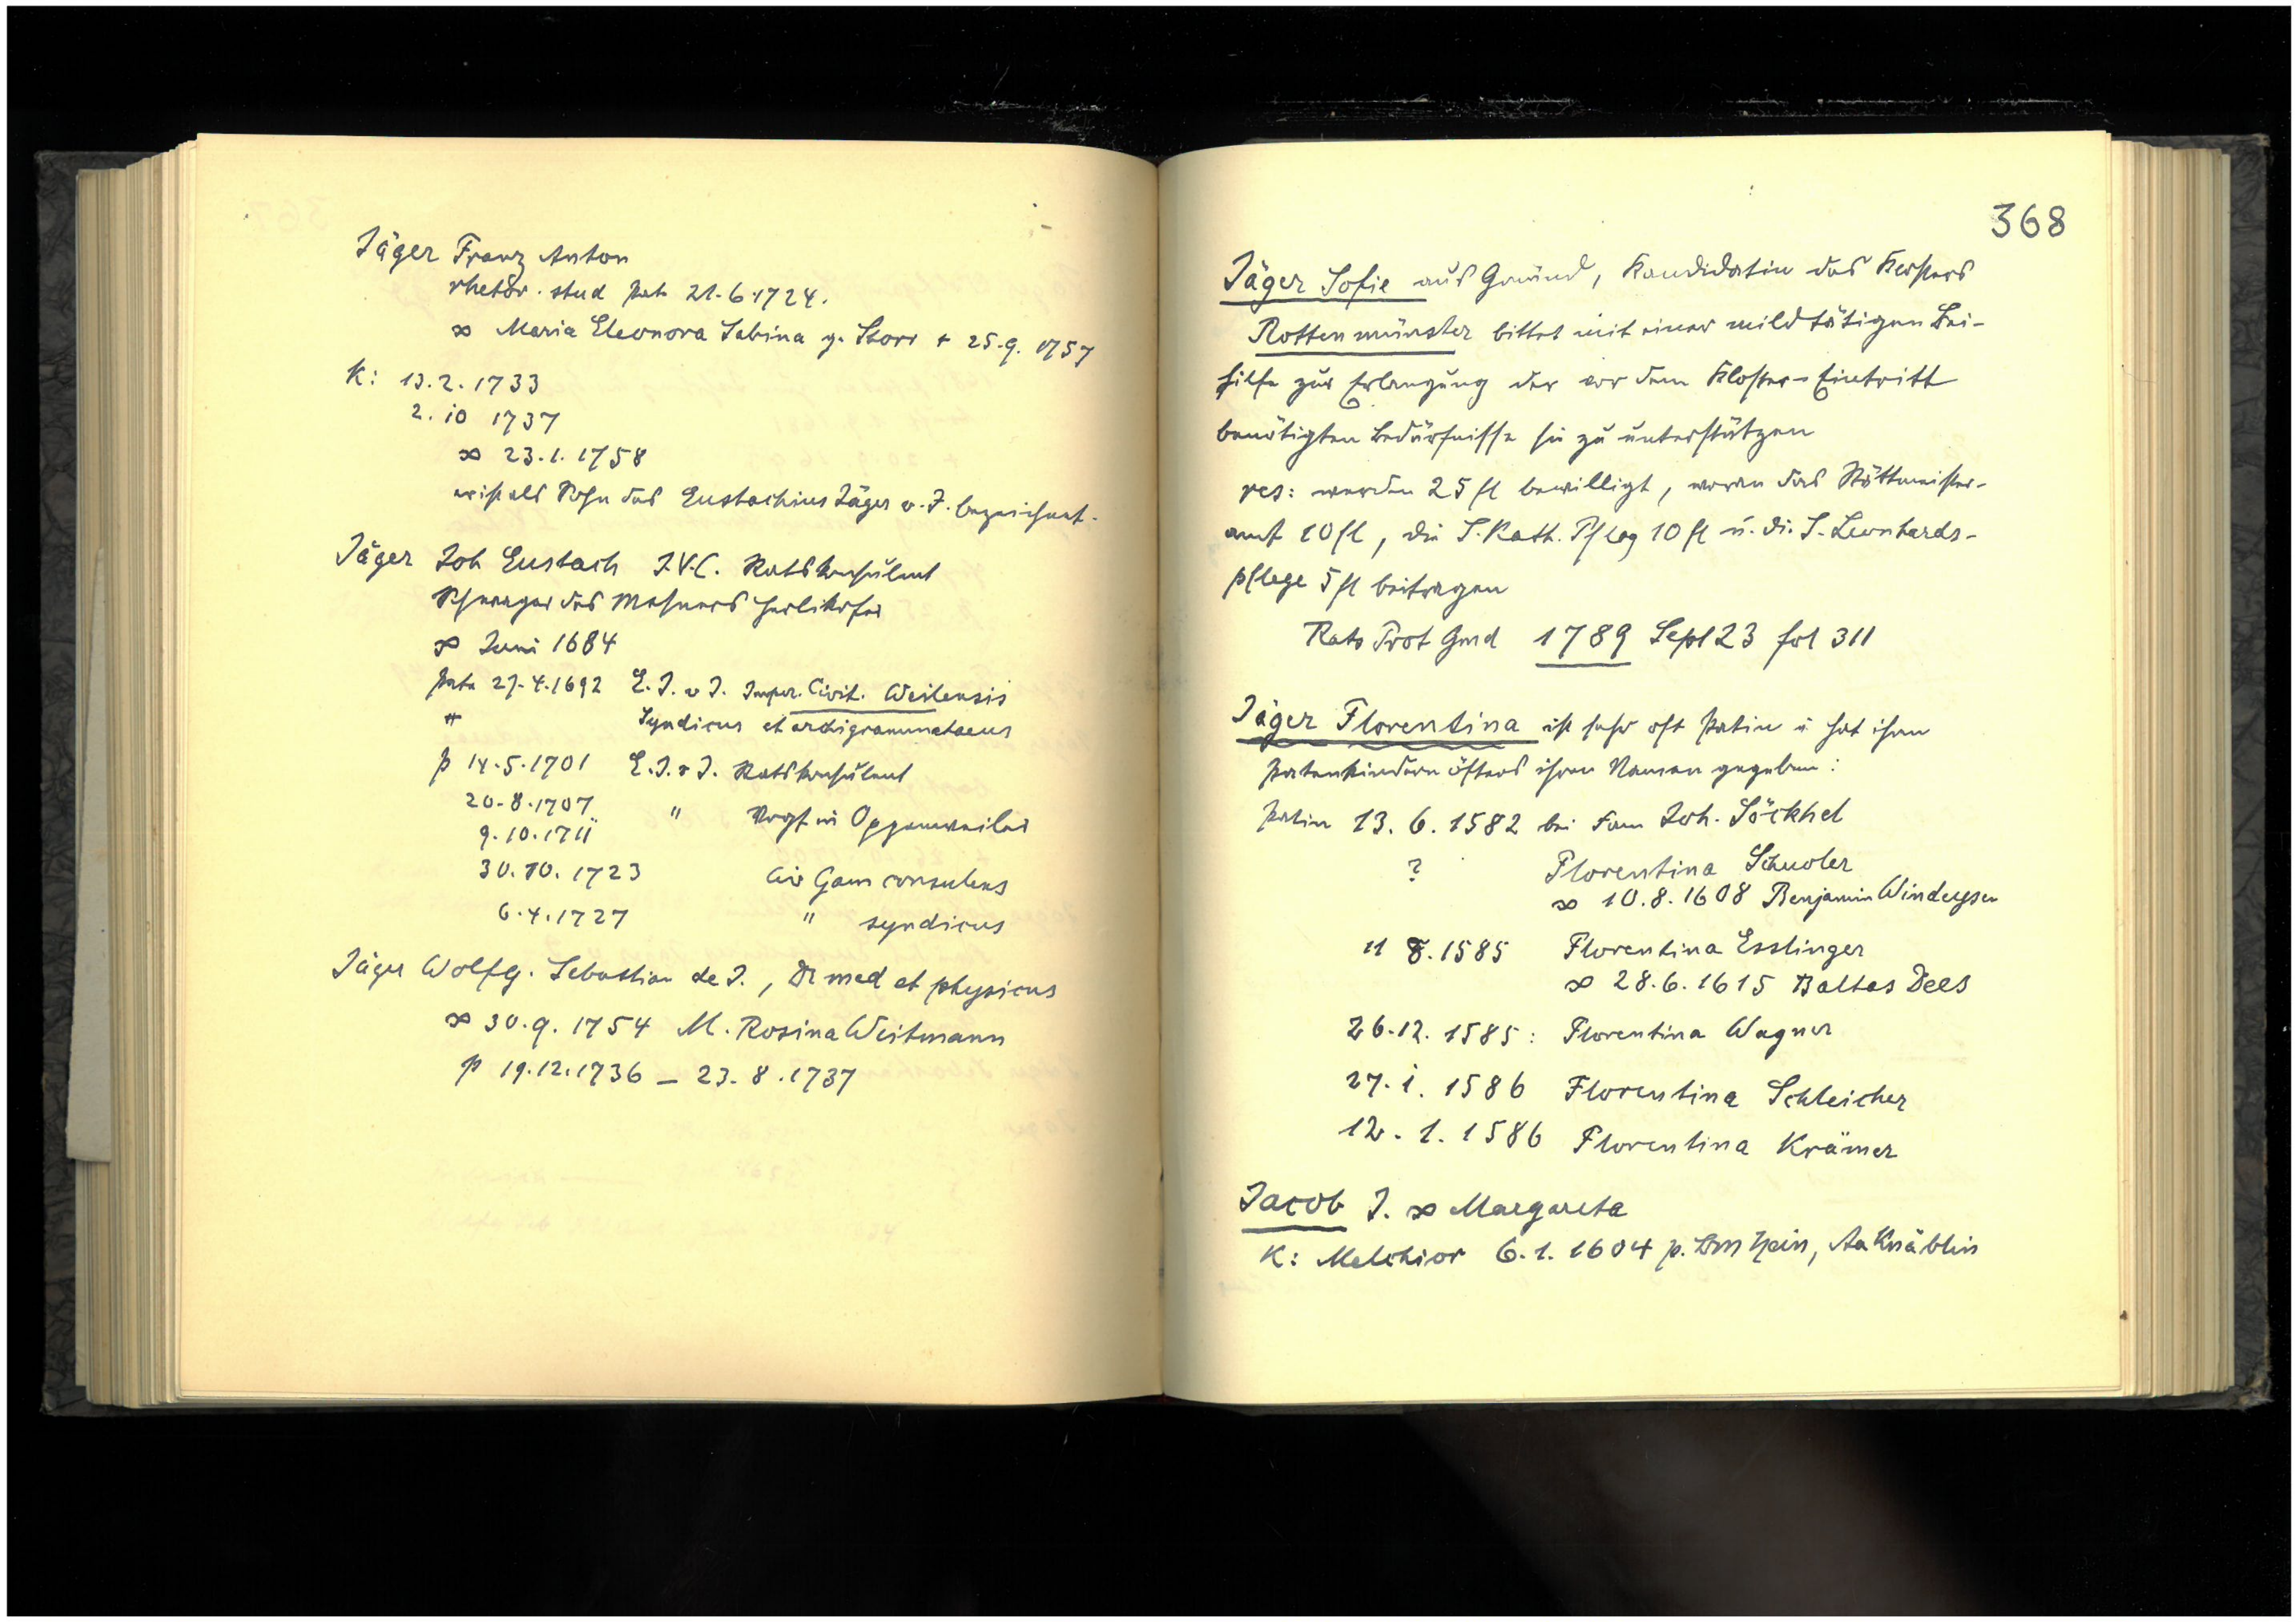 Jäger Franz Anton
rhetor. stud pat 21.6.1724.
∞ Maria Eleonora Sabina g. Storr + 25.9.1757
K: 13.2.1733
2.10 1737
∞ 23.1.1758
er ist als Sohn des Eustachius Jäger v. J. bezeichnet.
Jäger Joh Eustach J.V.C. Ratskonsulent
Schwager des Mesners Herlikofer
∞ Juni 1684
pate 27.4.1692 E. J. v J. Imper. Civit. Weilensis
" Syndicus et archigrammataeus
p 14.5.1701 E. J. v J. Ratskonsulent
20.8.1707 " Vogt in Oppenweiler
9.10.1711
30.10.1723 Civ Gam consulens
6.4.1727 " syndicus
Jäger Wolfg. Sebastian de J., Dr med et physicus
∞ 30.9.1754 M. Rosina Weitmann
p 19.12.1736 – 23.8.1737
368
Jäger Sofie aus Gmünd, Kandidatin des Klosters
Rottenmünster bittet mit einer mildtätigen Bei-
hilfe zur Erlangung der vor dem Kloster-Eintritt
benötigten Bedürfnisse sie zu unterstützen
res: werden 25 fl bewilligt, woran das Stättmeister-
amt 10 fl, die S. Kath. Pfleg 10 fl u. die S. Leonhards-
pflege 5 fl beitragen
Rats Prot Gmd 1789 Sept 23 fol 311
Jäger Florentina ist sehr oft Patin u hat ihren
Patenkindern öfters ihren Namen gegeben:
Patin 13.6.1582 bei Fam Joh. Söckhel
? Florentina Schuoler
∞ 10.8.1608 Benjamin Windeysen
11 8.1585 Florentina Esslinger
∞ 28.6.1615 Baltas Dees
26.12.1585: Florentina Wagner
27.1.1586 Florentina Schleicher
12.1.1586 Florentina Krämer
Jacob J. ∞ Margareta
K: Melchior 6.1.1604 p. Aa Knäblin